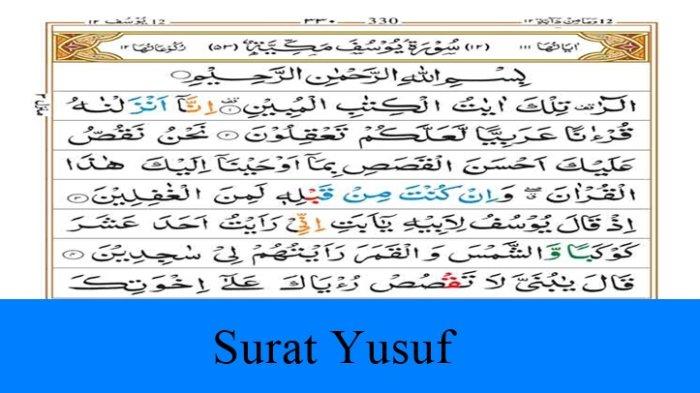 ١٢ يُوْسُف ١٢ ٣٣٠ 330 وَمَا مِنْ دَآبَّةٍ ١٢
اٰيَاتُهَا ١١١ (١٢) سُوْرَةُ يُوْسُفَ مَكِّيَّةٌ (٥٣) رُكُوْعَاتُهَا ١٢
بِسْمِ اللّٰهِ الرَّحْمٰنِ الرَّحِيْمِ
الٓرٰ تِلْكَ اٰيٰتُ الْكِتٰبِ الْمُبِيْنِ ۝١ اِنَّآ اَنْزَلْنٰهُ
قُرْءٰنًا عَرَبِيًّا لَّعَلَّكُمْ تَعْقِلُوْنَ ۝٢ نَحْنُ نَقُصُّ
عَلَيْكَ اَحْسَنَ الْقَصَصِ بِمَآ اَوْحَيْنَآ اِلَيْكَ هٰذَا
الْقُرْاٰنَ وَاِنْ كُنْتَ مِنْ قَبْلِهٖ لَمِنَ الْغٰفِلِيْنَ ۝٣
اِذْ قَالَ يُوْسُفُ لِاَبِيْهِ يٰٓاَبَتِ اِنِّىْ رَاَيْتُ اَحَدَ عَشَرَ
كَوْكَبًا وَّالشَّمْسَ وَالْقَمَرَ رَاَيْتُهُمْ لِىْ سٰجِدِيْنَ ۝٤
قَالَ يٰبُنَىَّ لَا تَقْصُصْ رُءْيَاكَ عَلٰٓى اِخْوَتِكَ
Surat Yusuf